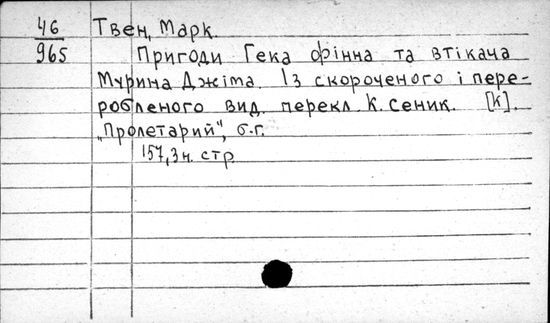 46 Твен, Марк.
965 Пригоди Гека Фінна та втікача
Мурина Джіма. Із скороченого і пере-
робленого вид. перекл. К. Сеник. [К].
„Пролетарий", б.г.
157, 3 н. стр.